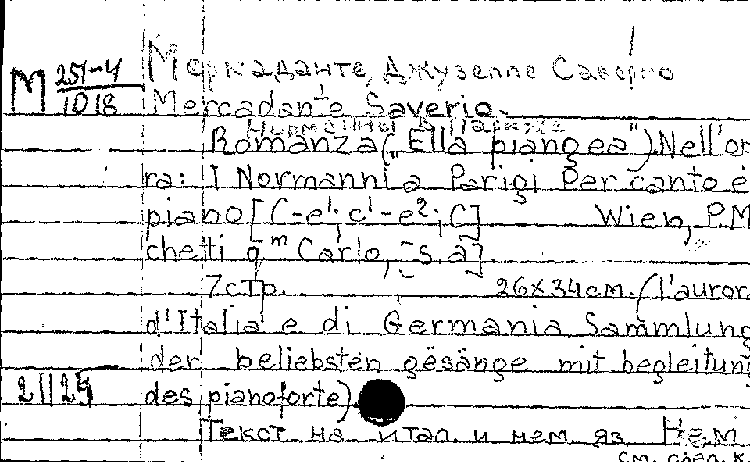 М 251-4 / 1018
Меркаданте, Джузеппе Саверио
Mercadante Saverio.
Норманны в Париже
Romanza („Ella piangea") Nell'ope
ra: I Normanni a Parigi Per canto e
piano [C-e¹; c¹-e²; C] Wien, P.M
chetti qᵐ Carlo, [s.a].
7стр. 26х34см. (l'auror
d'Italia e di Germania Sammlung
der beliebsten gësänge mit begleitun
21124 des pianoforte)
Текст на итал. и нем яз. Н.е.м.
см. обел. к.